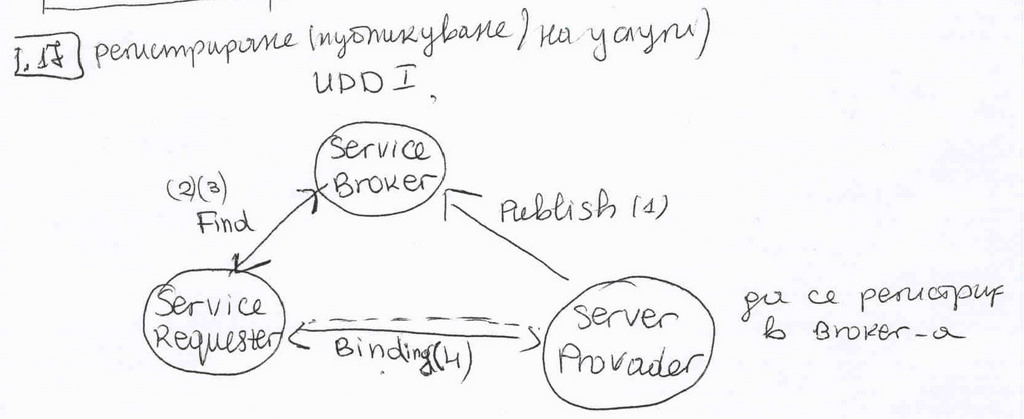 I.17 регистриране (публикуване) на услуги)
UDDI,
Service
Broker
(2)(3)
Find
Publish (1)
Service
Requester
Binding(4)
Server
Provader
да се регистрир
в Broker-a